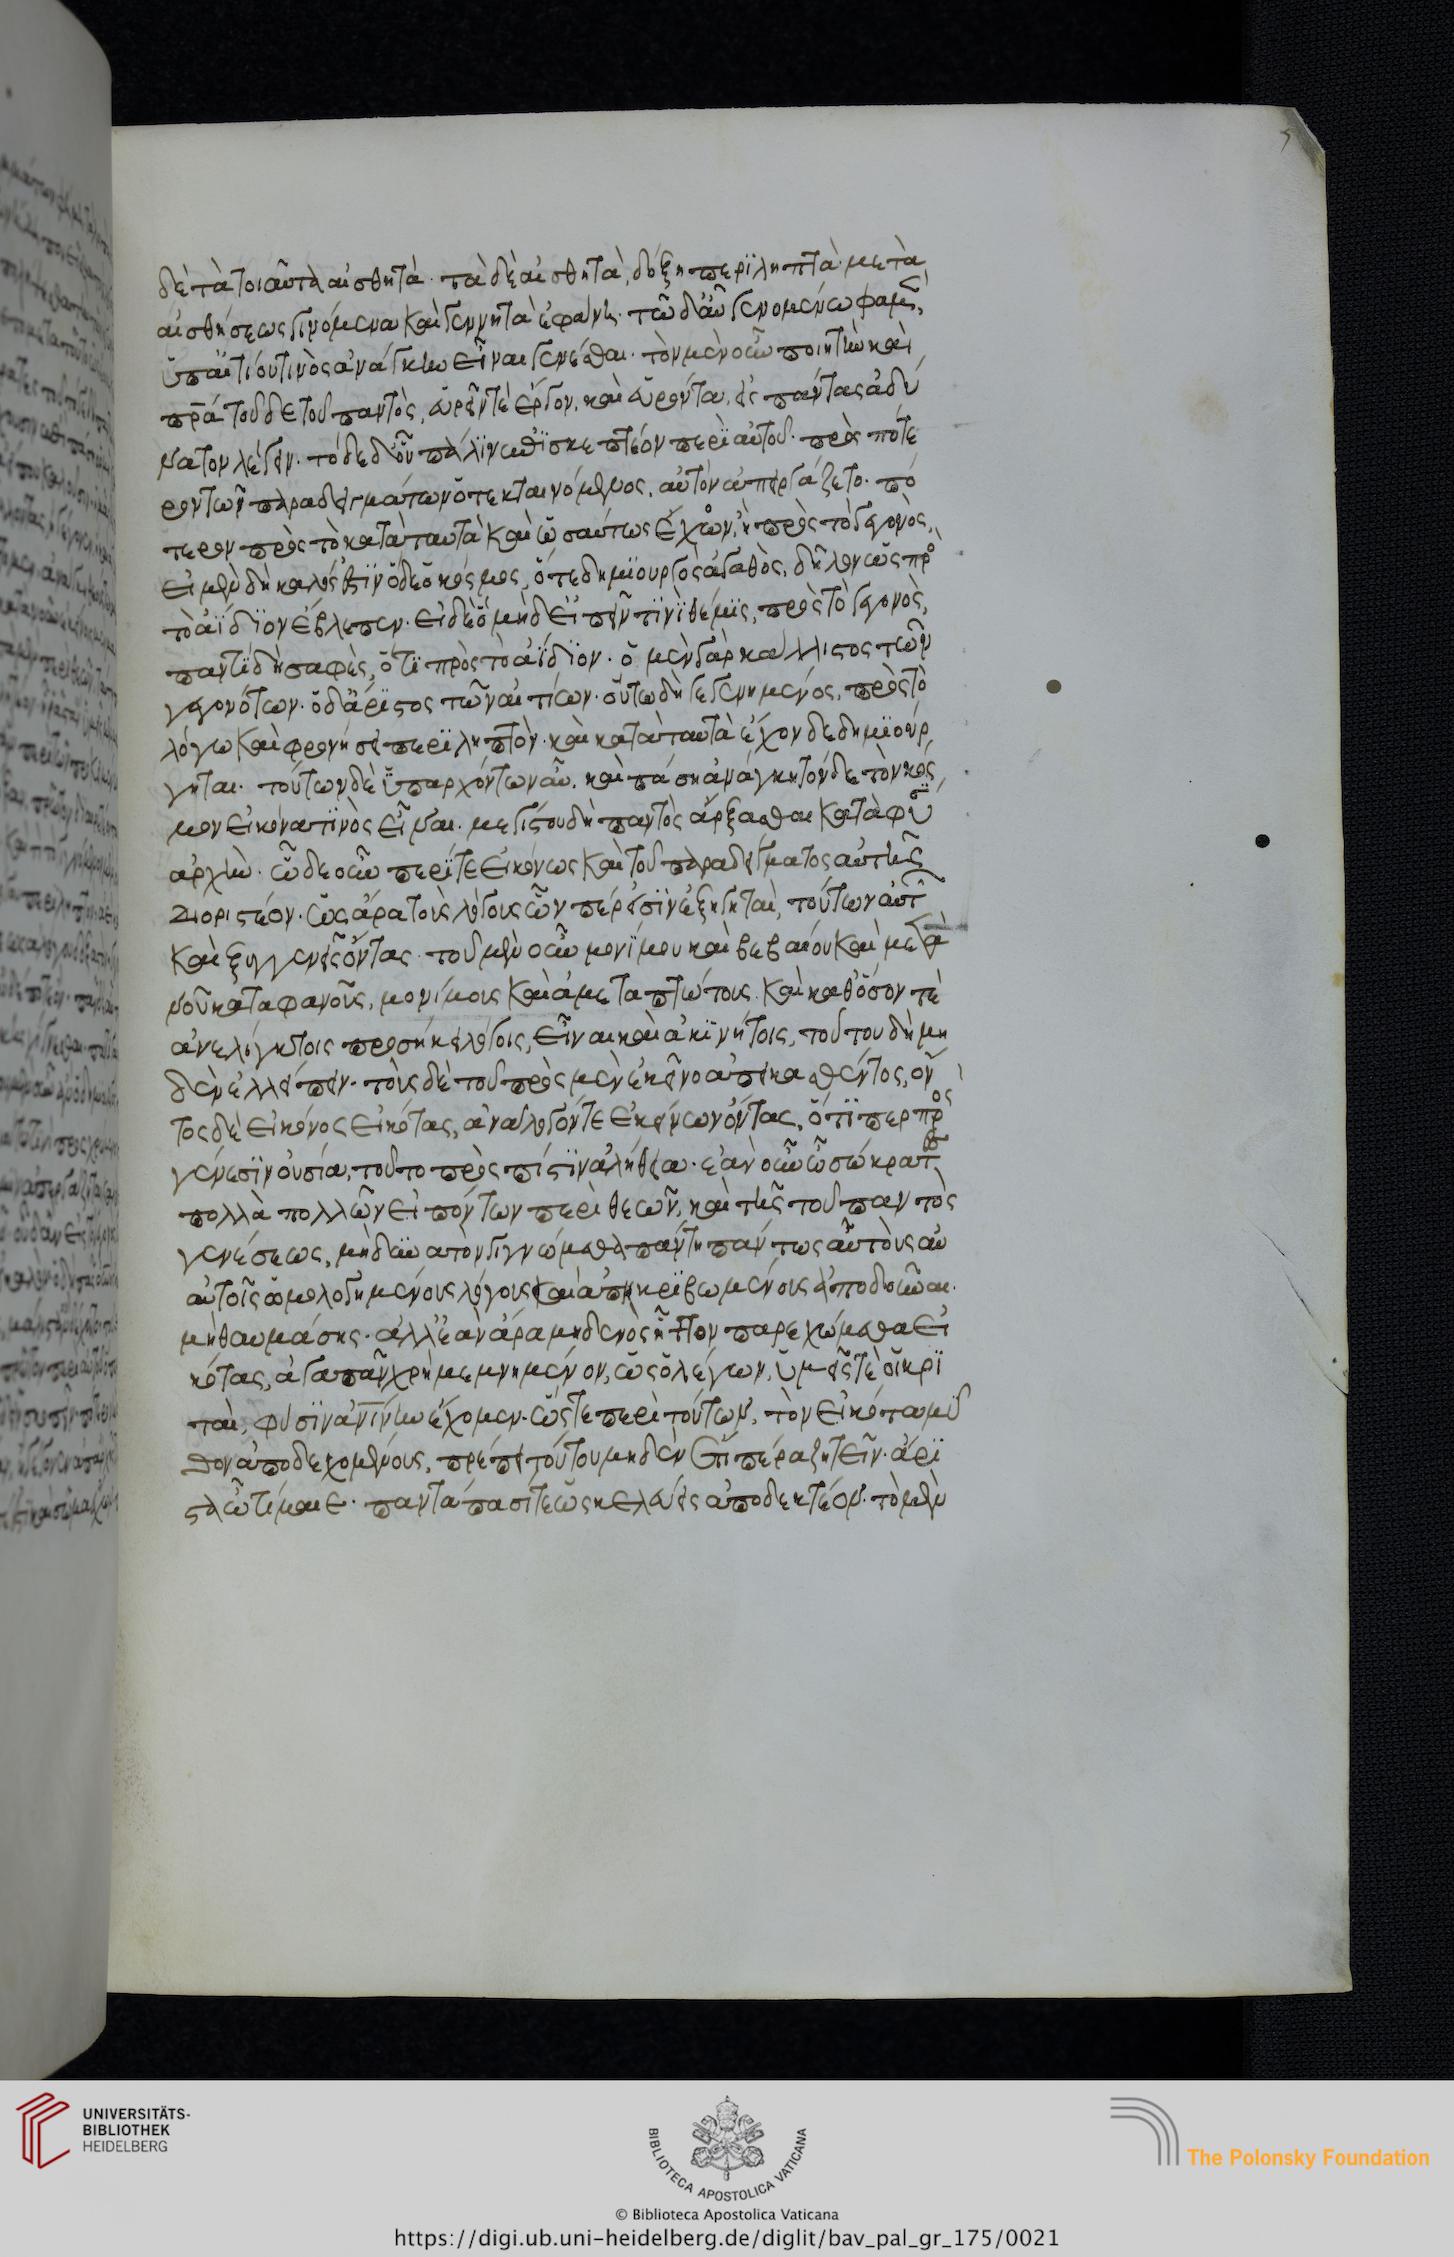 δὲ τὰ τοιαῦτα αἰσθητά· τὰ δὲ αἰσθητὰ, δόξη περϊληπτὰ μετὰ
αἰσθήσεως γινόμενα καὶ γεννητὰ ἐφάνη· τῶ δ' αὖ γενομένω φαμὲν,
ὑπ' αἰτίου τινὸς ἀνάγκην εἶναι γενέσθαι· τὸν μὲν οὖν ποιητὴν καὶ
πρα τοῦδε τοῦ παντὸς, εὑρεῖν τὲ ἔργον, καὶ εὑρόντα, εἰς πάντας ἀδύ
νατον λέγειν. τόδε δ' οὖν πάλϊν ἐπϊσκεπτέον περὶ αὐτοῦ· πρὸς πότε
ρον τῶν παραδειγμάτων ὁ τεκταινόμενος, αὐτὸν ἀπειργάζετο· πό
τερον πρὸς τὸ κατὰ ταυτὰ καὶ ὡσαύτως ἔχον, ἢ πρὸς τὸ γεγονὸς,
εἰ μὲν δὴ καλός ἐστϊν ὅδε ὁ κόσμος, ὅ τε δημϊουργὸς ἀγαθὸς, δῆλον ὡς πρὸ
τὸ ἀΐδϊον ἔβλεπεν· εἰ δὲ ὃ μὴ δ' εἰπεῖν τϊνὶ θέμϊς, πρὸς τὸ γεγονὸς,
παντὶ δὴ σαφὲς, ὅτϊ πρὸς τὸ ἀΐδϊον· ὁ μὲν γὰρ κάλλιστος τῶν
γεγονότων· ὁ δ' ἄρϊστος τῶν αἰτίων· οὕτω δὴ γεγενημένος, πρὸς τὸ
λόγω καὶ φρονήσει περϊληπτὸν· καὶ κατὰ ταυτὰ ἔχον δεδημϊούρ
γηται· τούτων δὲ ὑπαρχόντων αὖ, καὶ πᾶσα ἀνάγκη τόνδε τὸν κόσ
μον εἰκόνα τϊνὸς εἶναι. μέγιστου δὴ παντὸς ἄρξασθαι κατὰ φύσϊ
ἀρχὴν· ὧδε οὖν περί τε εἰκόνως καὶ τοῦ παραδείγματος αὐτῆς
διοριστέον· ὡς ἄρα τοὺς λόγους ὧν πέρ εἰσϊν ἐξηγηταὶ, τούτων αὐτ
καὶ ξυγγενεῖς ὄντας· τοῦ μὲν οὖν μονίμου καὶ βεβαίου καὶ μετὰ
νοῦ καταφανοῦς, μονίμοις καὶ ἀμεταπτώτοις. καὶ καθόσον τὲ
ἀνελέγκτοις προσήκει λόγοις, εἶναι καὶ ἀκϊνήτοις, τούτου δὴ μη
δὲν ἐλλείπειν· τοὺς δὲ τοῦ πρὸς μὲν ἐκεῖνο ἀπεικασθέντος, ὄν
τος δὲ εἰκόνος εἰκότας, ἀνάλογόν τε ἐκείνων ὄντας, ὅτϊ περ πρὸς
γένεσϊν οὐσία, τοῦτο πρὸς πίστϊν ἀλήθεια· ἐὰν οὖν ὦ σώκρατες
πολλὰ πολλῶν εἰπόντων περὶ θεῶν, καὶ τῆς τοῦ παντὸς
γενέσεως, μὴ δυνατὸν γιγνώμεθα πάντη πάντως αὐτοὺς αὐ
αὐτοῖς ὁμολογημένους λόγους καὶ ἀπηκρϊβωμένους ἀποδοῦναι.
μὴ θαυμάσης· ἀλλ' ἐὰν ἄρα μηδενὸς ἧττον παρεχώμεθα εἰ
κότας, ἀγαπᾶν χρὴ μεμνημένον, ὡς ὁ λέγων, ὑμεῖς τὲ οἱ κρϊ
ταὶ, φύσϊν ἀνίνην ἔχομεν· ὥστε περὶ τούτων, τὸν εἰκότα μῦ
θον ἀποδεχομένους, πρέπει τούτου μηδὲν ἔτι πέρα ζητεῖν. ἄρϊ
στα ὦ τίμαιε· παντάπασί τε ὡς κελεύεις ἀποδεκτέον· τὸ μὲν
UNIVERSITÄTS-
BIBLIOTHEK
HEIDELBERG
BIBLIOTECA APOSTOLICA VATICANA
The Polonsky Foundation
© Biblioteca Apostolica Vaticana
https://digi.ub.uni-heidelberg.de/diglit/bav_pal_gr_175/0021